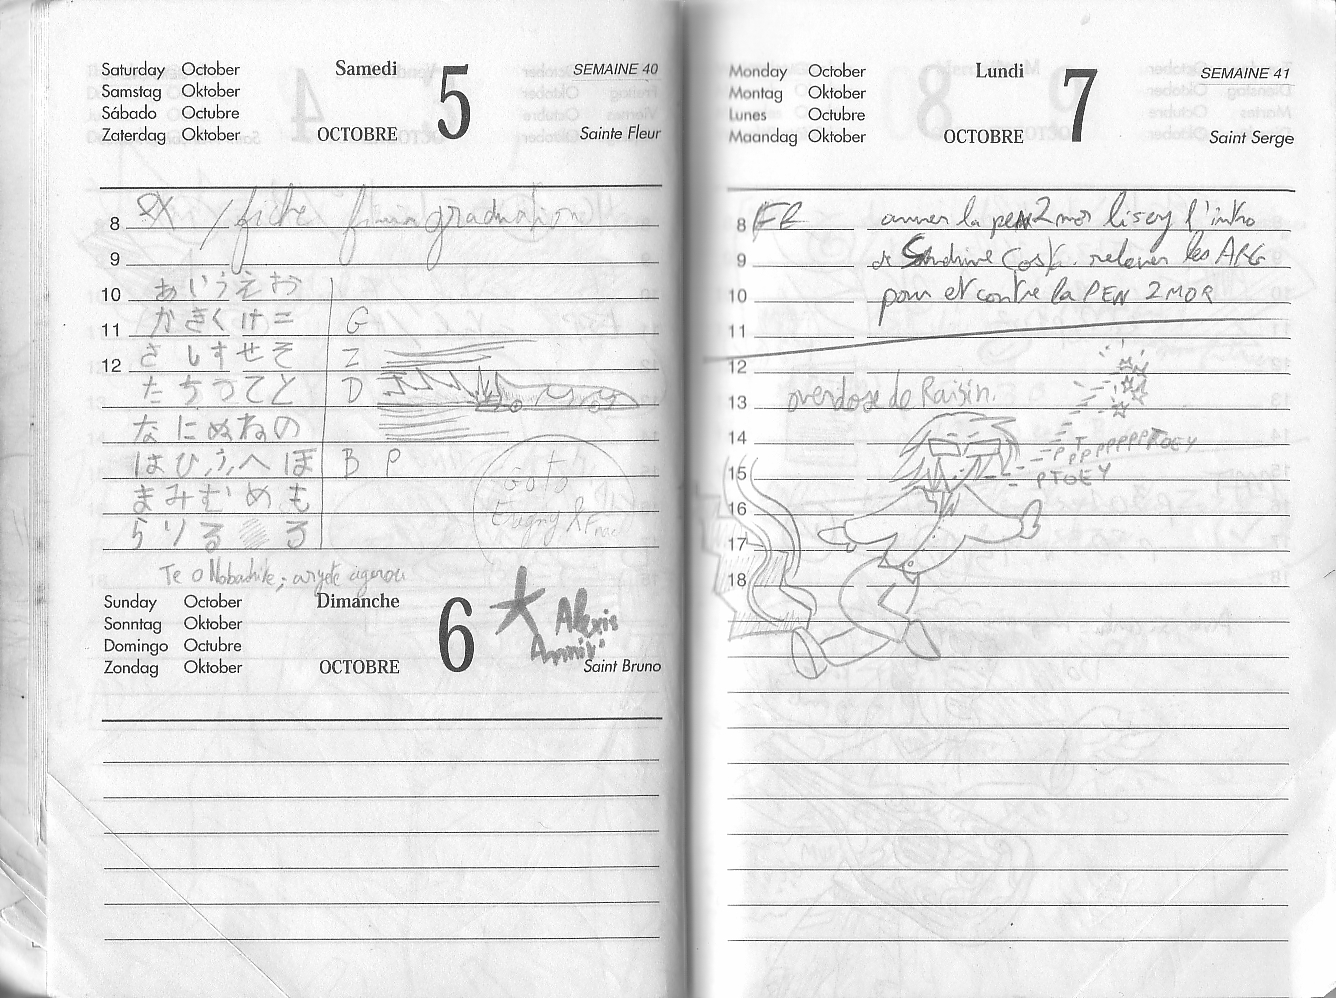 Saturday October
Samstag Oktober
Sábado Octubre
Zaterdag Oktober
Samedi
OCTOBRE
5
SEMAINE 40
Sainte Fleur
8 / fiche graduation
9
10 あいうえお
11 かきくけこ G
12 さしすせそ Z
13 たちつてと D
14 なにぬねの
15 はひふへほ B P
まみむめも
らりる ろ
Goto
Eragny & Fnac
Te o
Sunday October
Sonntag Oktober
Domingo Octubre
Zondag Oktober
Dimanche
OCTOBRE
6
Alexis
Anniv
Saint Bruno
Monday October
Montag Oktober
Lunes Octubre
Maandag Oktober
Lundi
OCTOBRE
7
SEMAINE 41
Saint Serge
8 FR la 2mor l'intro
9 Sandrine relever les ARG
10 pour et contre la PEN 2MOR
11
12
13 overdose de Raisin.
14 PTPPPPPPTOEY
15 PTOEY
16
17
18